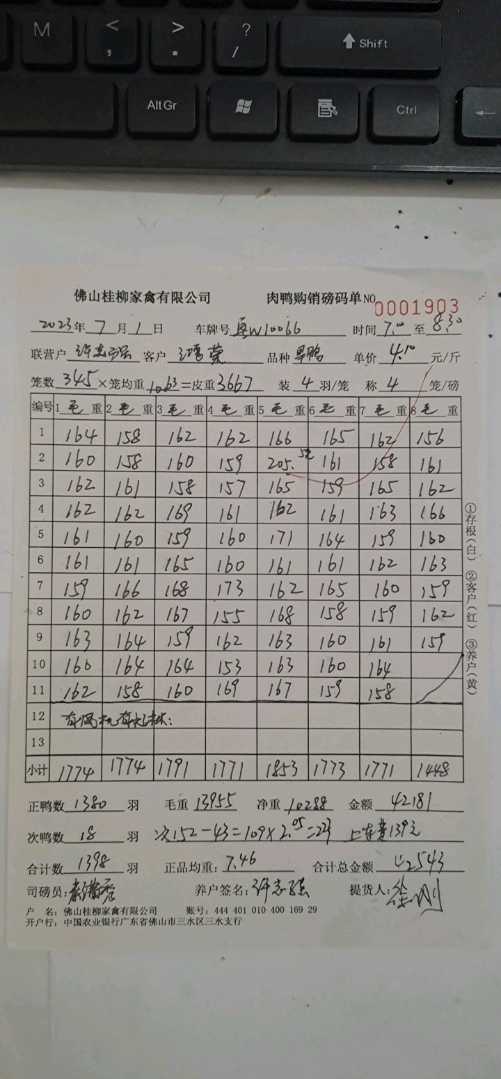 M < , > . ? / Shift
AltGr Ctrl
佛山桂柳家禽有限公司 肉鸭购销磅码单 NO 0001903
2023年 7 月 1 日 车牌号 粤W10066 时间 7.00 至 8.30
联营户 客户 品种 旱鸭 单价 4.10 元/斤
笼数 345 ×笼均重 10.63 =皮重 3667 装 4 羽/笼 称 4 笼/磅
编号 1 毛 重 2 毛 重 3 毛 重 4 毛 重 5 毛 重 6 毛 重 7 毛 重 8 毛 重
1 164 158 162 162 166 165 162 156
2 160 158 160 159 205. 5笼 161 158 161
3 162 161 158 157 165 159 165 162
4 162 162 169 161 162 161 163 166
5 161 160 159 160 171 164 159 160
6 161 161 165 160 161 161 162 163
7 159 166 168 173 162 165 160 159
8 160 162 167 155 168 158 159 162
9 163 164 159 162 163 160 161 159
10 166 164 164 153 163 160 164
11 162 158 160 169 167 159 158
12
13
小计 1774 1774 1791 1771 1853 1773 1771 1448
①存根(白) ②客户(红) ③养户(黄)
正鸭数 1380 羽 毛重 13955 净重 10288 金额 42181
次鸭数 18 羽 次152-43=109×2.05=223 上车费139元
合计数 1398 羽 正品均重: 7.46 合计总金额 42543
司磅员: 养户签名: 提货人:
户 名: 佛山桂柳家禽有限公司 账号: 444 401 010 400 169 29
开户行: 中国农业银行广东省佛山市三水区三水支行